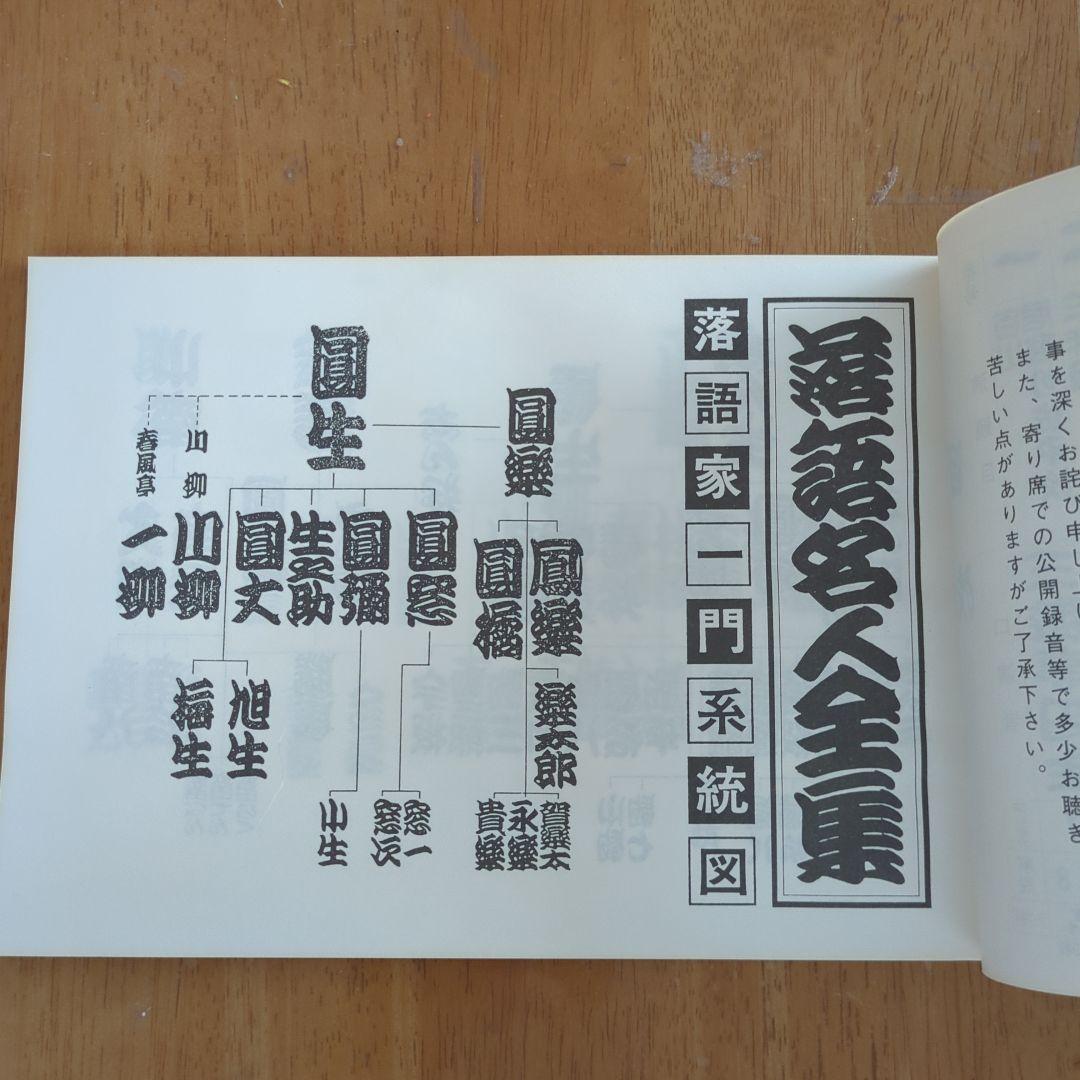 事を深くお詫び申し上げ
また、寄り席での公開録音等で多少お聴き
苦しい点がありますがご了承下さい。
落語名人全集
落語家一門系統図
圓生
圓樂
圓窓
圓彌
生之助
圓丈
川柳
川柳
春風亭
一柳
鳳樂
圓橘
樂太郎
賀樂太
永樂
貴樂
窓一
窓次
小生
旭生
福生